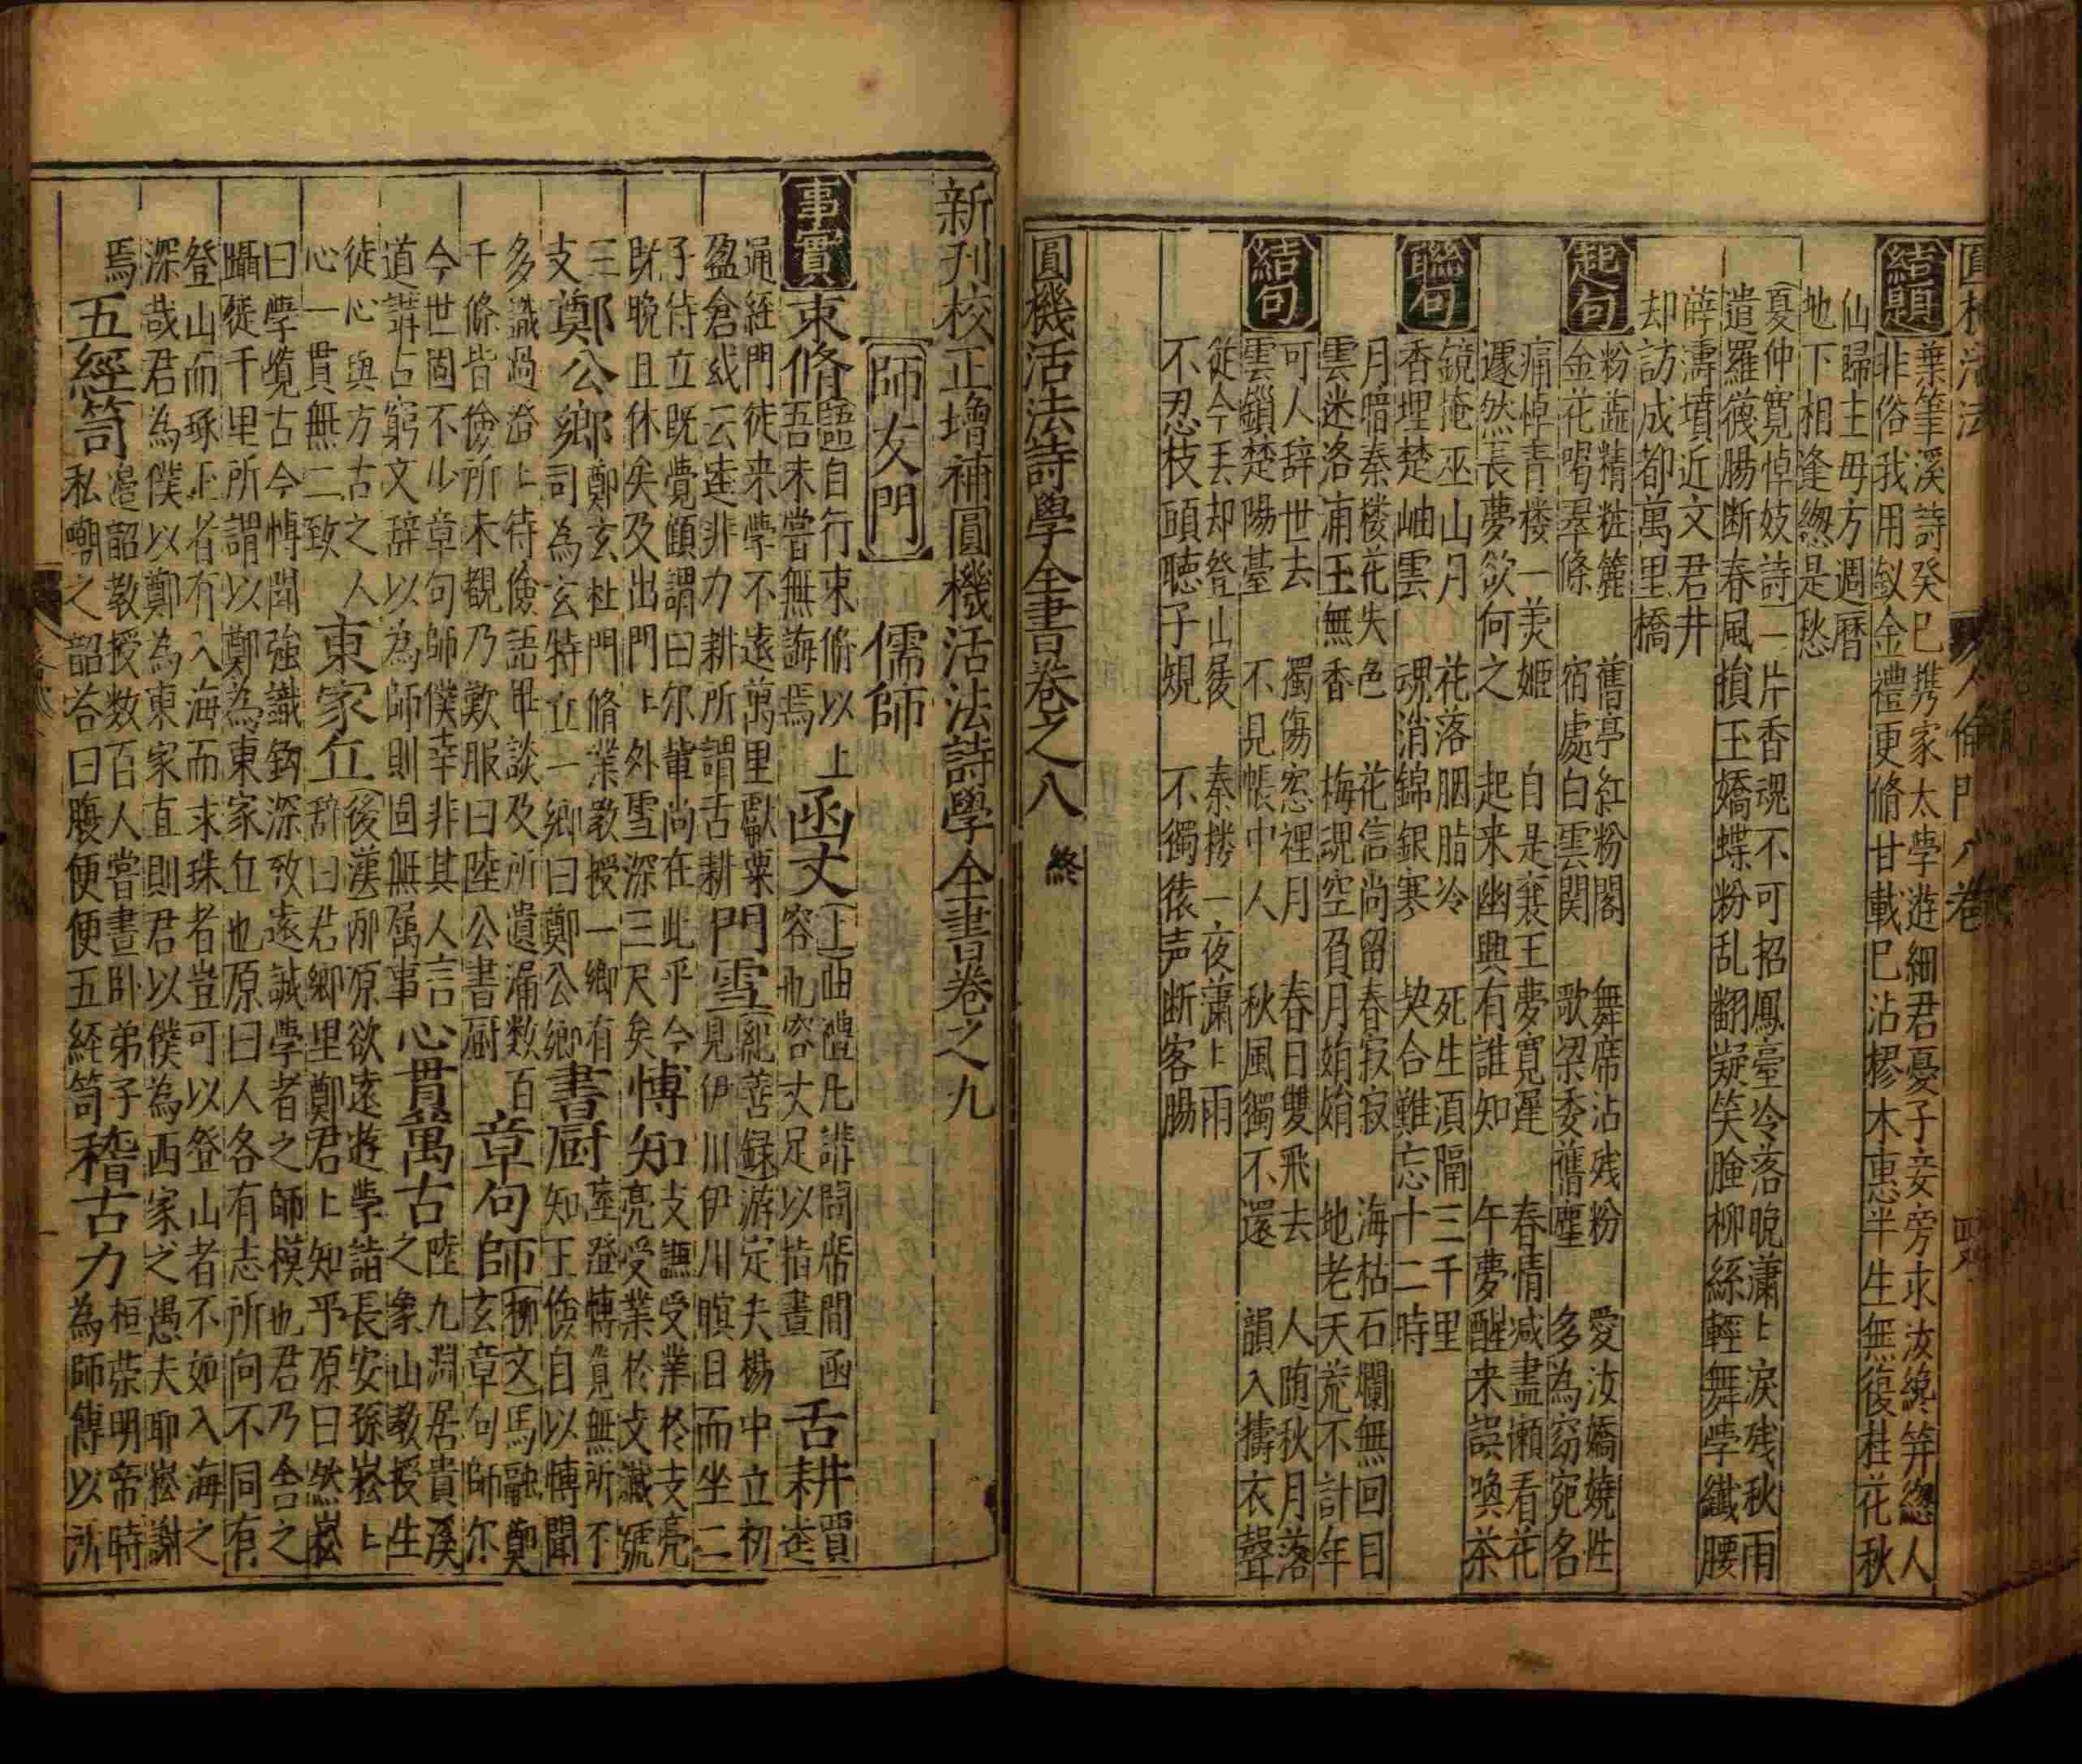 圓機活法 人倫門八卷
結題
葉筆溪詩癸巳携家太學遊細君憂子妾旁求汝纔笄緫人
非俗我用釵金禮更脩甘載巳沾樛木惠半生無復桂花秋
仙歸主毋方週曆
地下相逢緫是愁
夏仲寬悼妓詩一片香魂不可招鳳臺冷落晚瀟〻淚残秋雨
遣羅後腸断春風損玉嬌蝶粉乱翻疑笑臉柳絲輕舞學纖腰
薛濤墳近文君井
却訪成都萬里橋
起句
粉蔬精粧簏 舊亭紅粉閣 舞席沾残粉 愛汝嬌嬈性
金花喝翠條 宿處白雲関 歌梁委舊塵 多為窈窕名
痛悼青楼一美姬 自是襄王夢覓遲 春情减盡懶看花
遽然長夢欲何之 起来幽興有誰知 午夢醒来誤喚茶
聯句
鏡掩巫山月 花落胭脂冷 死生湏隔三千里
香埋楚岫雲 魂消錦銀寒 契合難忘十二時
月暗秦楼花失色 花信尚留春寂寂 海枯石爛無回目
雲迷洛浦玉無香 梅魂空負月娟娟 地老天荒不計年
結句
可人辞世去 獨傷窓裡月 春日雙飛去 人随秋月落
雲鎖楚陽臺 不見帳中人 秋風獨不還 韻入擣衣聲
從今丢却登山屐 秦楼一夜瀟〻雨
不忍枝頭聴子規 不獨猿声断客腸
圓機活法詩學全書卷之八 終
新刋校正增補圓機活法詩學全書卷之九
師友門 儒師
事實
束脩 語自行束脩以上 函丈 上曲禮凡講問席間函 舌耕 賈
吾未嘗無誨焉 容也容丈足以指畫 逵
通経門徒来學不遠萬里獻粟 門雪 䜟善録游定夫楊中立初
盈倉或云逵非力耕所謂舌耕 見伊川伊川瞑目而坐二
子侍立既覺顧謂曰尔軰尚在此乎今 博知 支謙受業於支亮
既晚且休矣及出門〻外雪深三尺矣 亮受業於支䜟號
三 鄭公鄉 鄭玄杜門脩業教授一鄉有 書厨 陸澄博覧無所不
支 司為玄特立一鄉曰鄭公鄉 知王儉自以博聞
多識過澄〻待儉語畢談及所遺漏数百 章句師 柳文馬融鄭
千條皆儉所未覩乃歎服曰陸公書厨 玄章句師尔
今世固不少章句師僕幸非其人言 心貫萬古 陸九淵居貴溪
道講占窮文辞以為師則固無属事 之象山教授生
徒心與方古之人 東家丘 後漢邴原欲遠遊學詣長安孫崧〻
心一貫無二致 辞曰君鄉里鄭君〻知乎原曰然崧
曰學覽古今博聞強識鈎深致遠誠學者之師模也君乃舍之
躡徙千里所謂以鄭為東家丘也原曰人各有志所向不同有
登山而琢玉者有入海而求珠者豈可以登山者不如入海之
深哉君為僕以鄭為東家直則君以僕為西家之愚夫耶崧謝
焉 五經笥 邉韶教授数百人嘗晝卧弟子 稽古力 桓荣明帝時
私嘲之韶荅曰腹便便五経笥 為師傅以所